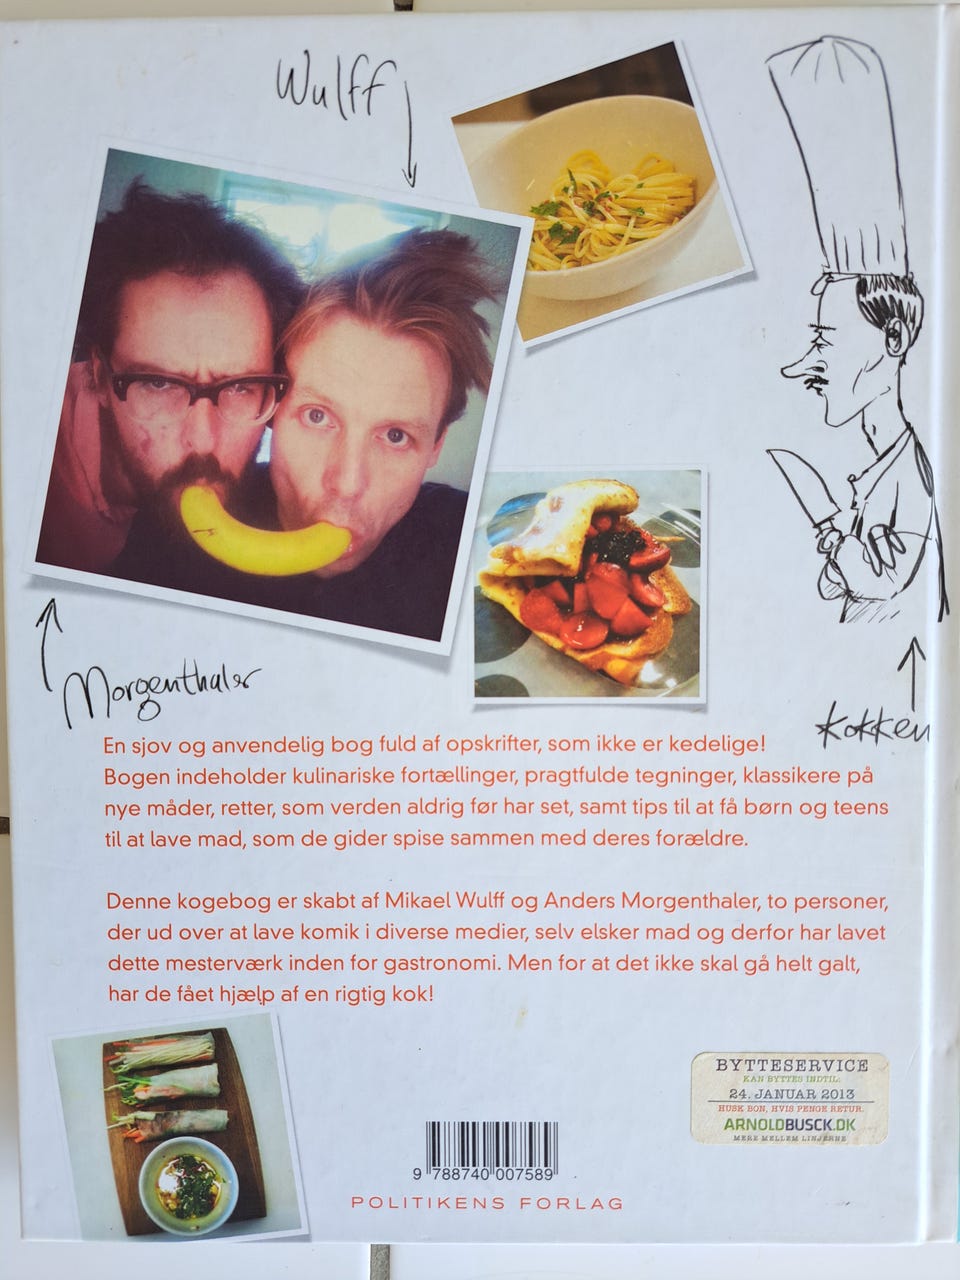 Wulff
Morgenthaler
Kokken
En sjov og anvendelig bog fuld af opskrifter, som ikke er kedelige!
Bogen indeholder kulinariske fortællinger, pragtfulde tegninger, klassikere på
nye måder, retter, som verden aldrig før har set, samt tips til at få børn og teens
til at lave mad, som de gider spise sammen med deres forældre.
Denne kogebog er skabt af Mikael Wulff og Anders Morgenthaler, to personer,
der ud over at lave komik i diverse medier, selv elsker mad og derfor har lavet
dette mesterværk inden for gastronomi. Men for at det ikke skal gå helt galt,
har de fået hjælp af en rigtig kok!
BYTTESERVICE
KAN BYTTES INDTIL:
24. JANUAR 2013
HUSK BON, HVIS PENGE RETUR.
ARNOLDBUSCK.DK
MERE MELLEM LINJERNE
9 788740 007589
POLITIKENS FORLAG